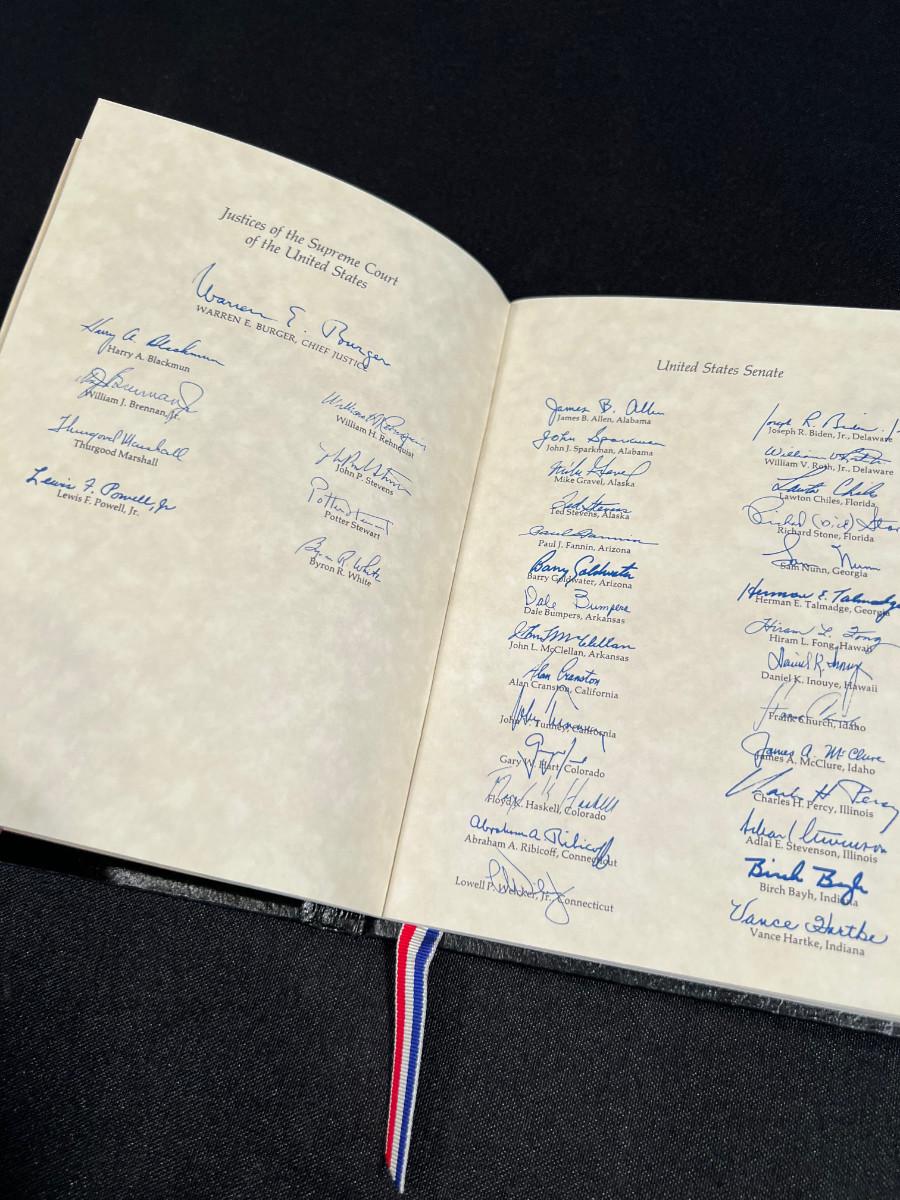 Justices of the Supreme Court
of the United States
Warren E. Burger
WARREN E. BURGER, CHIEF JUSTICE
Harry A. Blackmun
Harry A. Blackmun
William J. Brennan, Jr.
Thurgood Marshall
Thurgood Marshall
Lewis F. Powell, Jr
Lewis F. Powell, Jr.
William H. Rehnquist
William H. Rehnquist
John P. Stevens
Potter Stewart
Potter Stewart
Byron R. White
Byron R. White
United States Senate
James B. Allen
James B. Allen, Alabama
John Sparkman
John J. Sparkman, Alabama
Mike Gravel
Mike Gravel, Alaska
Ted Stevens
Ted Stevens, Alaska
Paul Fannin
Paul J. Fannin, Arizona
Barry Goldwater
Barry Goldwater, Arizona
Dale Bumpers
Dale Bumpers, Arkansas
John L. McClellan
John L. McClellan, Arkansas
Alan Cranston
Alan Cranston, California
John V. Tunney, California
Gary W. Hart, Colorado
Floyd K. Haskell
Floyd K. Haskell, Colorado
Abraham A. Ribicoff
Abraham A. Ribicoff, Connecticut
Lowell P. Weicker, Jr., Connecticut
Joseph R. Biden, Jr
Joseph R. Biden, Jr., Delaware
William V. Roth
William V. Roth, Jr., Delaware
Lawton Chiles
Lawton Chiles, Florida
Richard (Dick) Stone
Richard Stone, Florida
Sam Nunn
Sam Nunn, Georgia
Herman E. Talmadge
Herman E. Talmadge, Georgia
Hiram L. Fong
Hiram L. Fong, Hawaii
Daniel K. Inouye
Daniel K. Inouye, Hawaii
Frank Church
Frank Church, Idaho
James A. McClure
James A. McClure, Idaho
Charles H. Percy
Charles H. Percy, Illinois
Adlai E. Stevenson
Adlai E. Stevenson, Illinois
Birch Bayh
Birch Bayh, Indiana
Vance Hartke
Vance Hartke, Indiana